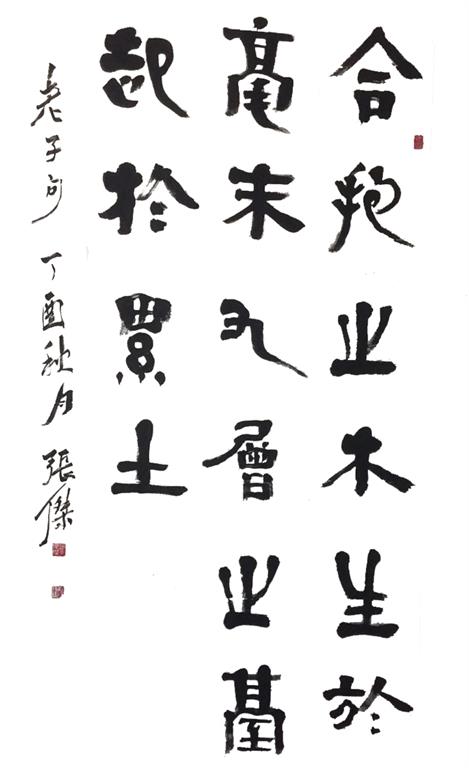 合抱之木生於
毫末九層之臺
起於累土
老子句 丁酉秋月 張傑